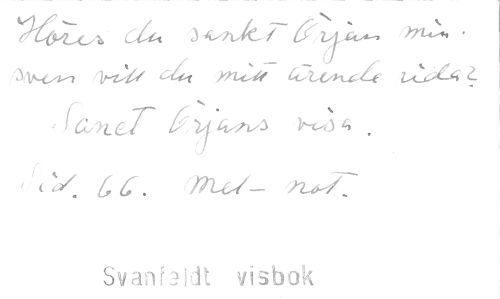 Höres du sankt Örjan min.
sven vill du mitt ärende rida?
Sanct Örjans visa.
Sid. 66. Mel- not.
Svanfeldt visbok